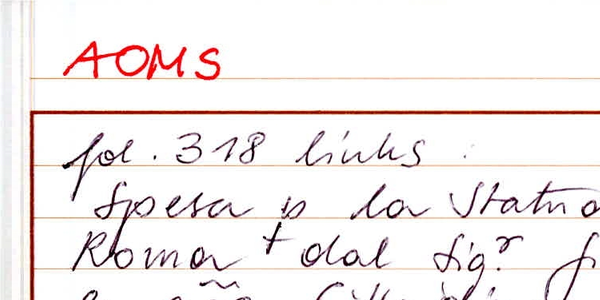 AOMS
fol. 318 links :
Spesa p la Statua
Roma + dal Sig.r